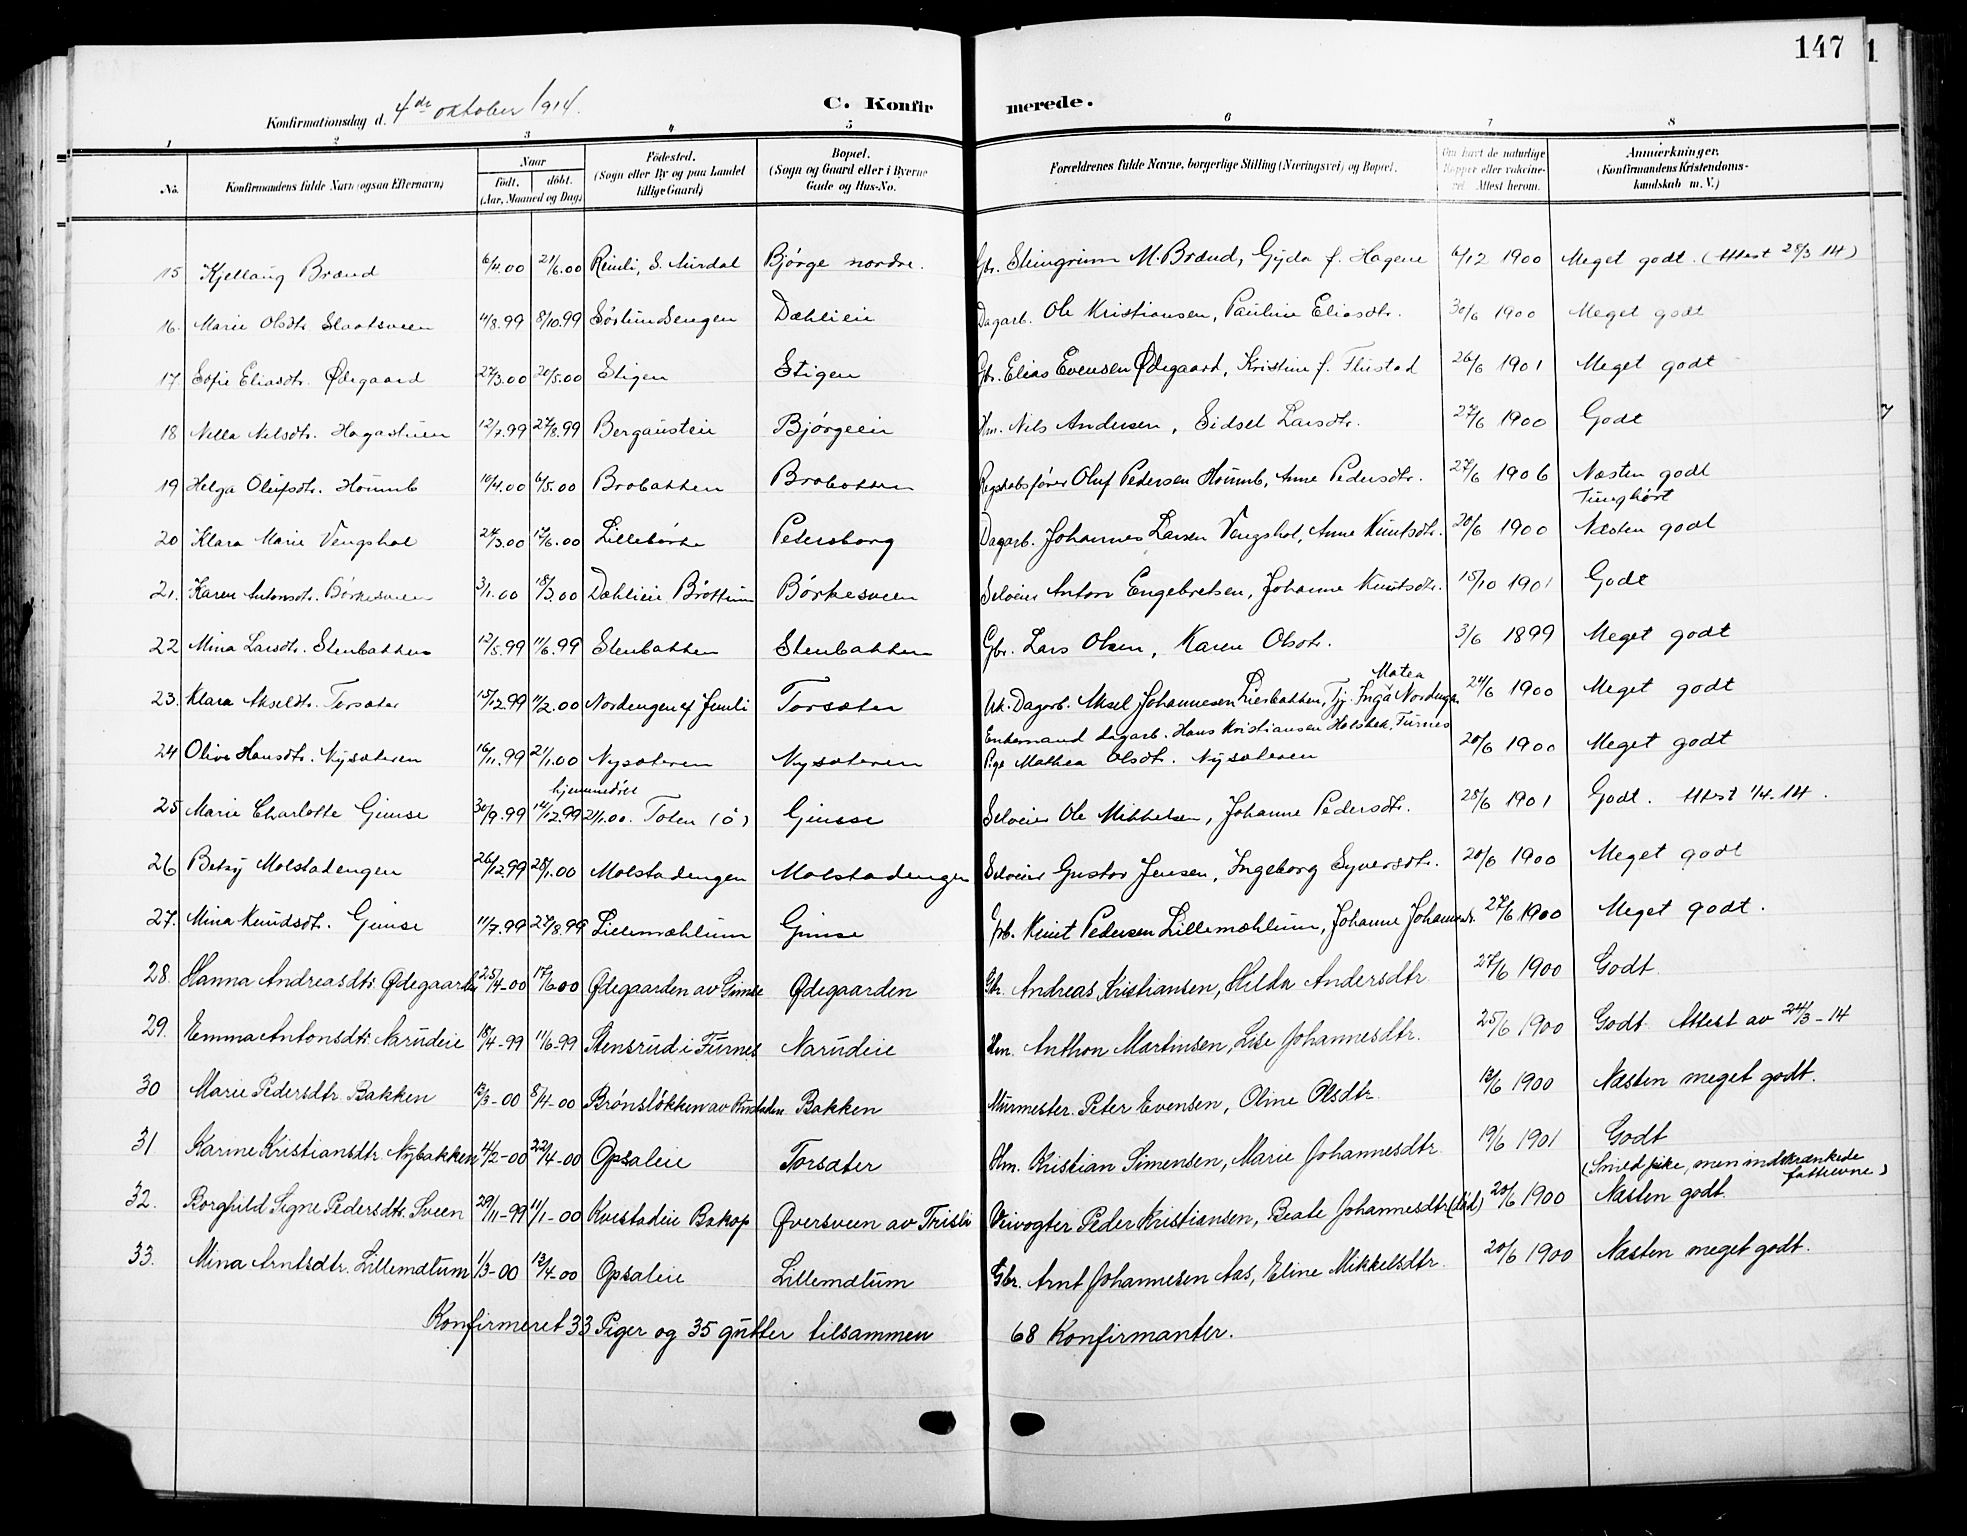 147
1
Konfirmationsdag d. 4de oktober 1914.
C. Konfirmerede.
1 2 3 4 5 6 7 8
No.
Konfirmandens fulde Navn (ogsaa Efternavn)
Naar
født. døbt.
(Aar, Maaned og Dag)
Fødested.
(Sogn eller By og paa Landet
tillige Gaard)
Bopæl.
(Sogn og Gaard eller i Byerne
Gade og Hus-No.
Forældrenes fulde Navne, borgerlige Stilling (Næringsvei) og Bopæl.
Om havt de naturlige
Kopper eller vakcine-
ret. Attest herom.
Anmærkninger.
(Konfirmandens Kristendoms-
kundskab m. V.)
15 Kjellaug Brænd 6/4.00 21/6.00 Reinli, S. Aurdal Bjørge nordre. Gbr. Steingrim M. Brænd, Gyda f. Hagene 6/12 1900 Meget godt. (Attest 28/3 14)
16. Marie Olsdtr. Slaatsveen 4/8.99 8/10.99 Sørlundsengen Dæhlieie Dagarb. Ole Kristiansen, Pauline Eliasdtr. 30/6 1900 Meget godt
17. Sofie Eliasdtr. Ødegaard 27/3.00 20/5.00 Stigen Stigen Gbr. Elias Evensen Ødegaard, Kristine f. Flustad 26/6 1901 Meget godt
18 Nella Nilsdtr. Hagastuen 12/7.99 27/8.99 Bergausteie Bjørgeeie Hm. Nils Andersen, Sidsel Larsdtr. 27/6 1900 Godt
7
19 Helga Olufsdtr. Houmb 10/4.00 6/5.00 Brobakken Brobakken Regnskabsfører Oluf Pedersen Houmb, Anne Pedersdtr. 27/6 1906 Næsten godt
Tunghørt
20 Klara Marie Vengshol 24/3.00 17/6.00 Lillebørke Petersborg Dagarb. Johannes Larsen Vengshol, Anne Knutsdtr. 20/6 1900 Næsten godt
21. Karen Antonsdtr. Børkesveen 3/1.00 18/3.00 Dæhlieie Brøttum Børkesveen Selveier Anton Engebretsen, Johanne Knutsdtr. 15/10 1901 Godt
22 Mina Larsdtr. Stenbakken 12/5.99 11/6.99 Stenbakken Stenbakken Gbr. Lars Olsen, Karen Olsdtr. 3/6 1899 Meget godt
Matea
23. Klara Akseldtr. Torsæter 15/12.99 11/2.00 Nordengen af Jemli Torsæter Uk. Dagarb. Aksel Johannesen Liesbakken, Tj. Inga Nordengen 24/6 1900 Meget godt
Enkemand dagarb. Hans Kristiansen Holsbek, Furnes
24 Olive Hansdtr. Nysæteren 16/11.99 21/1.00 Nysæteren Nysæteren Pige Mathea Olsdtr. Nysæteren 20/6 1900 Meget godt
hjemmedøbt
25 Marie Charlotte Gimse 30/9.99 14/12.99 21/1.00. Toten (ø) Gimse Selveier Ole Mikkelsen, Johanne Pedersdtr. 28/6 1901 Godt. Attest 1/4-14.
26 Betsy Molstadengen 26/12.99 28/1.00 Molstadengen Molstadengen Selveier Gustav Jensen, Ingeborg Syversdtr. 20/6 1900 Meget godt
27. Mina Knudsdtr. Gimse 11/7.99 27/8.99 Lillemæhlum Gimse Gbr. Knut Pedersen Lillemæhlum, Johanne Johannesdtr. 27/6 1900 Meget godt.
28. Hanna Andreasdtr. Ødegaarden 25/4-00 17/6 00 Ødegaarden av Gimse Ødegaarden Gbr. Andreas Kristiansen, Hilda Andersdtr. 27/6 1900 Godt.
29. Emma Antonsdtr. Narudeie 18/4-99 11/6-99 Stensrud i Furnes Narudeie Hm. Anthon Martinsen, Lise Johannesdtr. 25/6 1900 Godt. Attest av 24/3-14
30 Marie Pedersdtr. Bakken 13/3-00 8/4-00 Brønsløkken av Ringstaden Bakken Murmester Peter Evensen, Oline Olsdtr. 13/6 1900 Næsten meget godt.
31 Karine Kristiansdtr. Nybakken 4/2-00 22/4-00 Opsaleie Torsæter Hm. Kristian Simensen, Marie Johannesdtr. 19/6 1901 Godt
(Snild pike, men indskrænkede
fatteevne)
32. Borghild Signe Pedersdtr. Sveen 29/11-99 1/1-00 Kvestadeie Bakop Øversveen av Frisli Veivogter Peder Kristiansen, Beate Johannesdtr (död) 20/6 1900 Næsten godt.
33. Mina Arntsdtr. Lillemælum 1/3-00 13/4-00 Opsaleie Lillemælum Gbr. Arnt Johannesen Aas, Eline Mikkelsdtr. 20/6 1900 Næsten meget godt.
Konfirmeret 33 Piger og 35 gutter tilsammen 68 Konfirmanter.